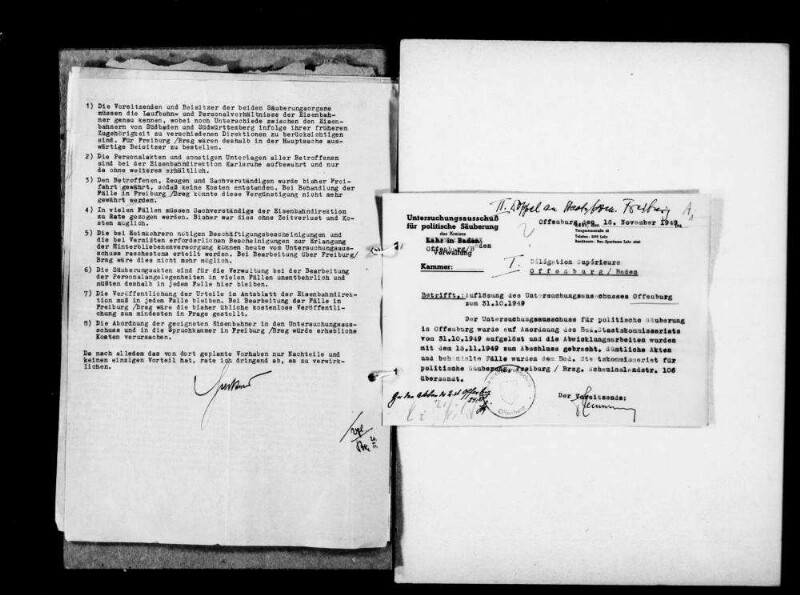 1) Die Vorsitzenden und Beisitzer der beiden Säuberungsorgane
müssen die Laufbahn- und Personalverhältnisse der Eisenbah-
ner genau kennen, wobei noch Unterschiede zwischen den Eisen-
bahnern von Südbaden und Südwürttemberg infolge ihrer früheren
Zugehörigkeit zu verschiedenen Direktionen zu berücksichtigen
sind. Für Freiburg /Brsg wären deshalb in der Hauptsache aus-
wärtige Beisitzer zu bestellen.
2) Die Personalakten und sonstigen Unterlagen aller Betroffenen
sind bei der Eisenbahndirektion Karlsruhe aufbewahrt und nur
da ohne weiteres erhältlich.
3) Den Betroffenen, Zeugen und Sachverständigen wurde bisher Frei-
fahrt gewährt, sodaß keine Kosten entstanden. Bei Behandlung der
Fälle in Freiburg /Brsg könnte diese Vergünstigung nicht mehr
gewährt werden.
4) In vielen Fällen müssen Sachverständige der Eisenbahndirektion
zu Rate gezogen werden. Bisher war dies ohne Zeitverlust und Ko-
sten möglich.
5) Die bei Heimkehrern nötigen Beschäftigungsbescheinigungen und
die bei Vermißten erforderlichen Bescheinigungen zur Erlangung
der Hinterbliebenenversorgung können heute vom Untersuchungsaus-
schuss raschestens erteilt werden. Bei Bearbeitung über Freiburg/
Brsg wäre dies nicht mehr möglich.
6) Die Säuberungsakten sind für die Verwaltung bei der Bearbeitung
der Personalangelegenheiten in vielen Fällen unentbehrlich und
müßten deshalb in jedem Falle hier bleiben.
7) Die Veröffentlichung der Urteile im Amtsblatt der Eisenbahndirek-
tion muß in jedem Falle bleiben. Bei Bearbeitung der Fälle in
Freiburg /Brsg wäre die bisher übliche kostenlose Veröffentli-
chung zum mindesten in Frage gestellt.
8) Die Abordnung der geeigneten Eisenbahner in den Untersuchungsaus-
schuss und in die Spruchkammer in Freiburg /Brsg würde erhebliche
Kosten verursachen.
Da nach alledem das von dort geplante Vorhaben nur Nachteile und
keinen einzigen Vorteil hat, rate ich dringend ab, es zu verwirk-
lichen.
II. Doppel an Staatskom. Freiburg
Untersuchungsausschuß
für politische Säuberung
des Kreises
Lahr in Baden
Offenburg/Baden
Verwaltung
Kammer:
Offenburg, den 16. November 1949
I. Délégation Supérieure
Offenburg/Baden
Betrifft. Auflösung des Untersuchungsauschusses Offenburg
zum 31.10.1949
Der Untersuchungsausschuss für politische Säuberung
in Offenburg wurde auf Anordnung des Bad.Staatskommissariats
vom 31.10.1949 aufgelöst und die Abwicklungsarbeiten wurden
mit dem 15.11.1949 zum Abschluss gebracht. Sämtliche Akten
und behandelte Fälle wurden dem Bad. Staatskommissariat für
politische Säuberung, Freiburg / Brsg. Schauinslandstr. 106
übersandt.
Der Vorsitzende:
Offenburg